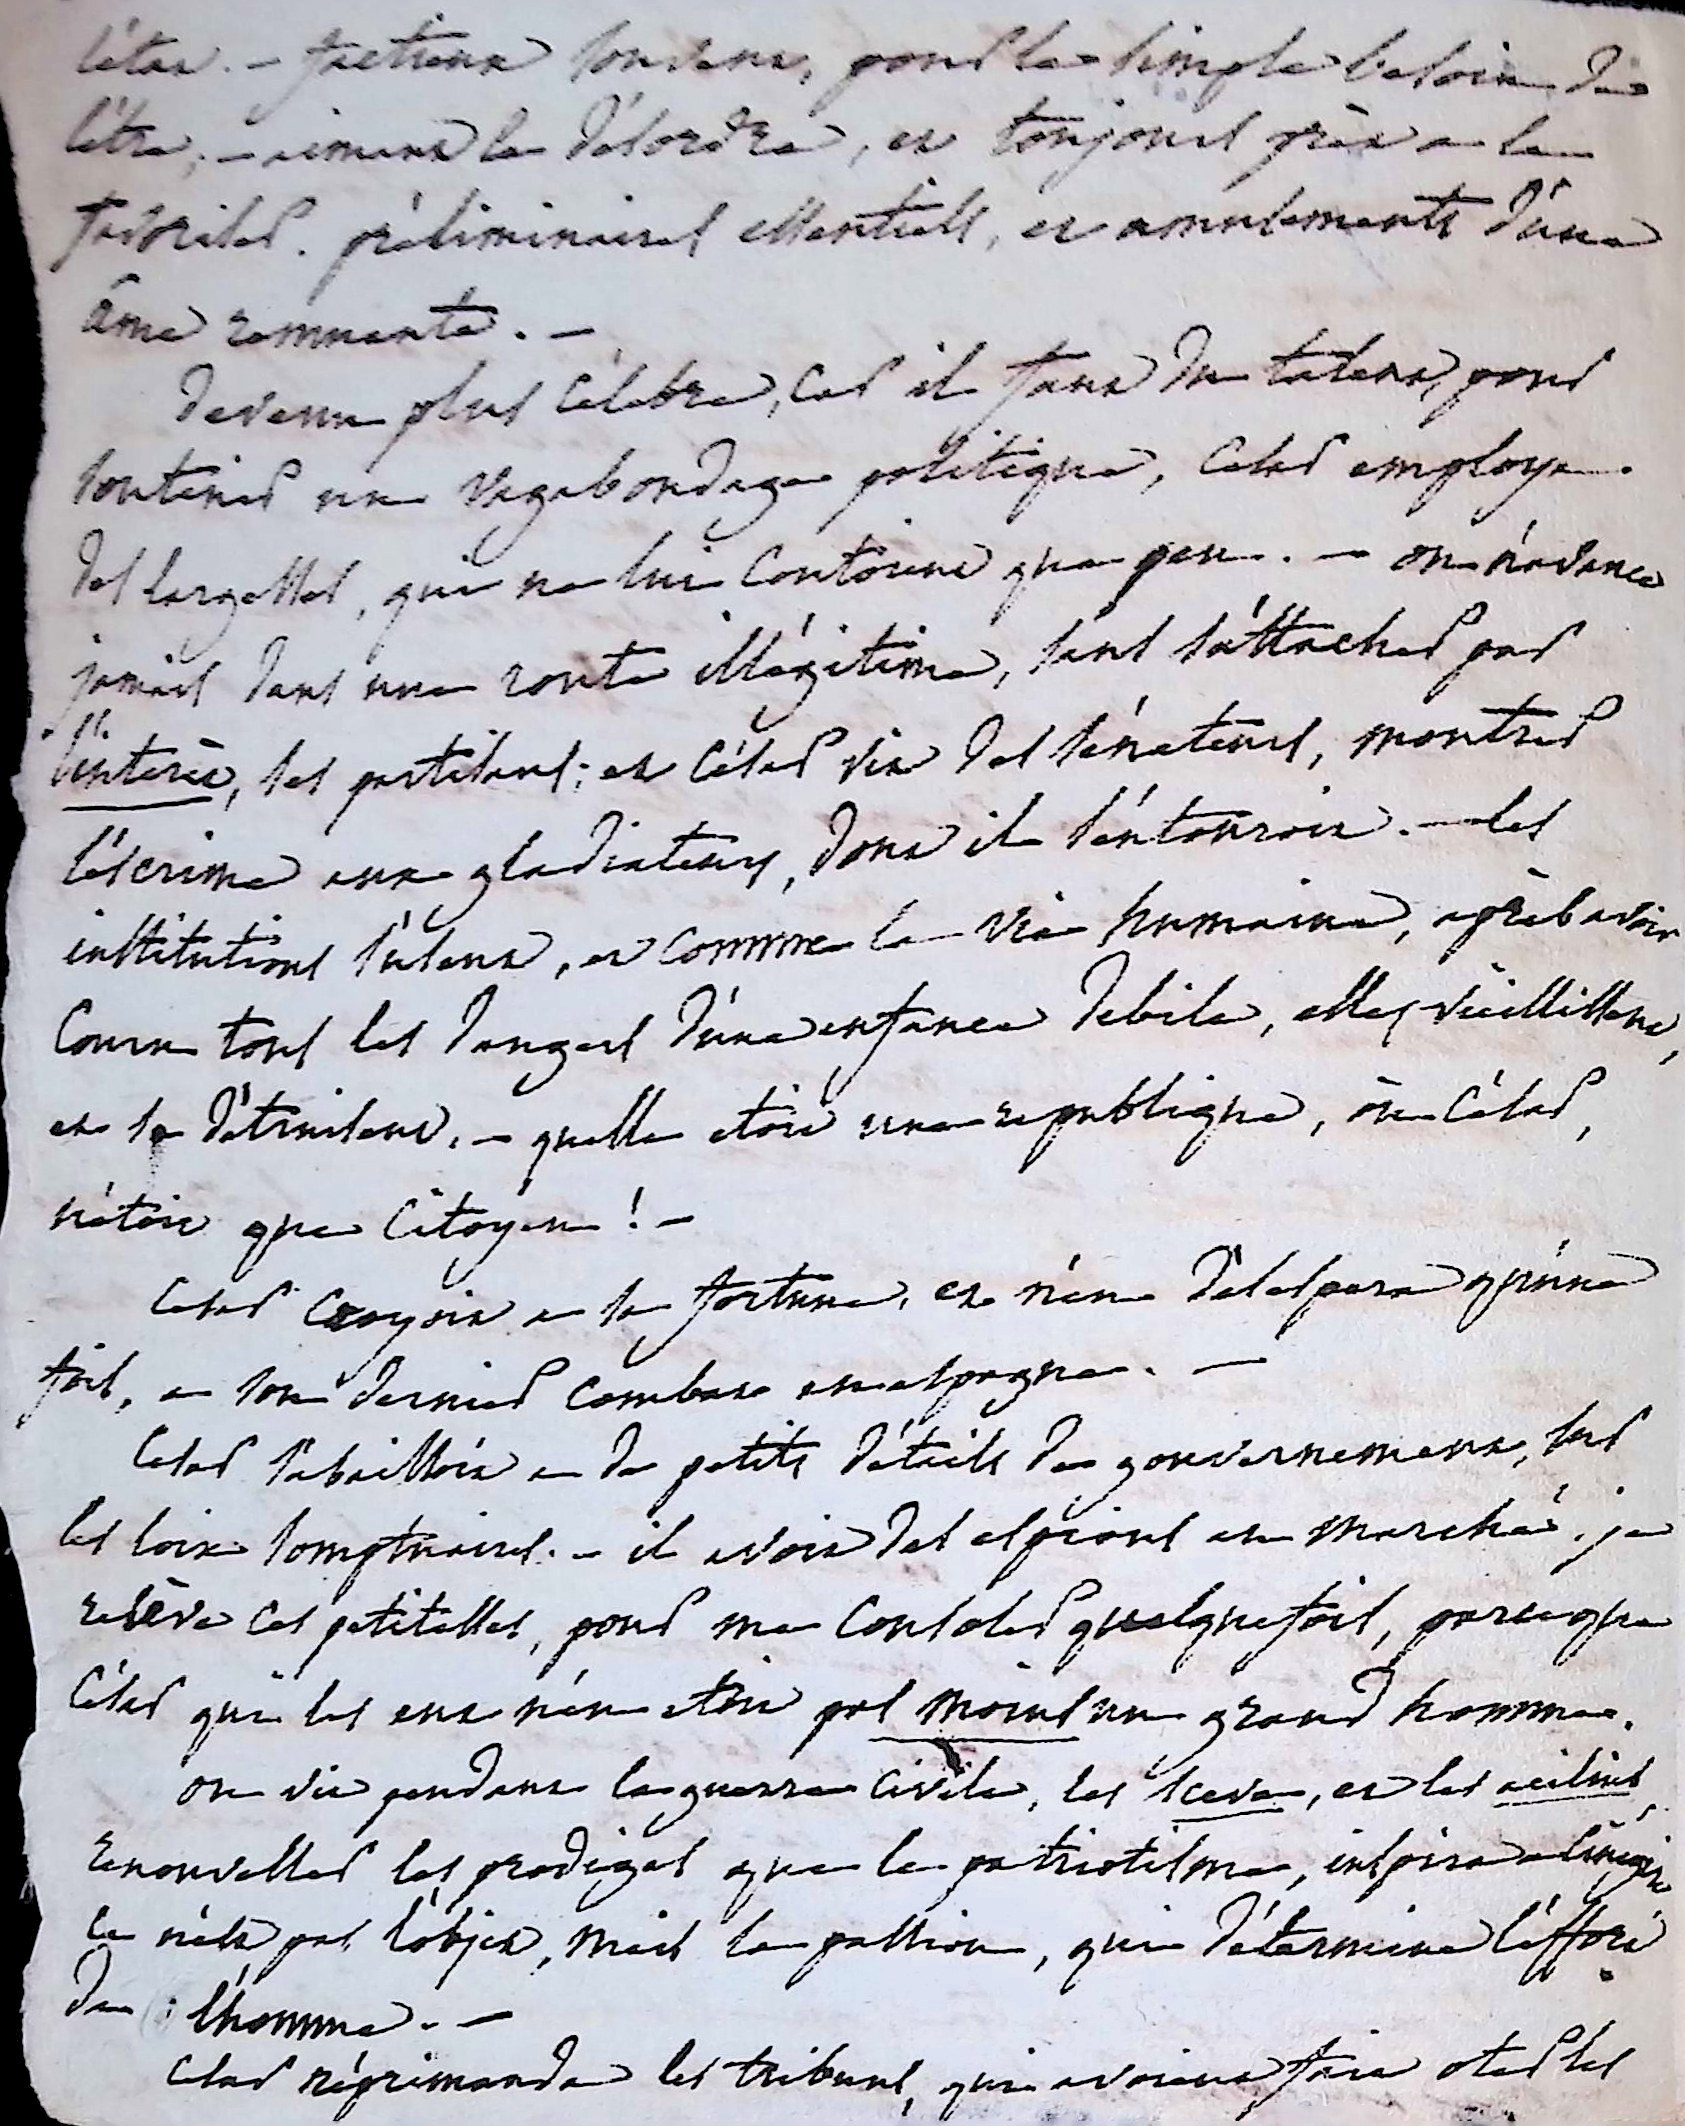 l'état. – factieux souvent, pour le simple besoin de
l'être, – aimant le désordre, et toujours prêt a le
favoriser. préliminaires essentiels, et amusements d'une
âme remuante. –
devenu plus célèbre, car il faut du talent, pour
soutenir un vagabondage politique, César employa
des largesses, qui ne lui coutoient que peu. – on n'avance
jamais dans une route illégitime, sans s'attacher par
l'intérêt, ses partisans; et César vit des sénateurs, montrer
l'escrime aux gladiateurs, dont il s'entouroit. – les
institutions s'usent, et comme la vie humaine, après avoir
couru tous les dangers d'une enfance debile, elles vieillissent,
et se détruisent. – quelle etoit une republique, où César,
n'étoit que citoyen! –
César croyoit a sa fortune, et n'en désespera qu'une
fois, a son dernier combat en espagne. –
César s'abaissoit a de petits détails de gouvernement, sur
les loix somptuaires. – il avoit des espions au marché. je
relève ces petitesses, pour me consoler quelquefois, parceque
César qui les eut n'en etoit pas moins un grand homme.
on vit pendant la guerre civile, les sceva, et les acilius,
renouveller les prodiges que le patriotisme, inspire a
ce n'est pas l'objet, mais la passion, qui détermine l'effort
de l'homme. –
César réprimanda les tribuns, qui avoient fait oter les